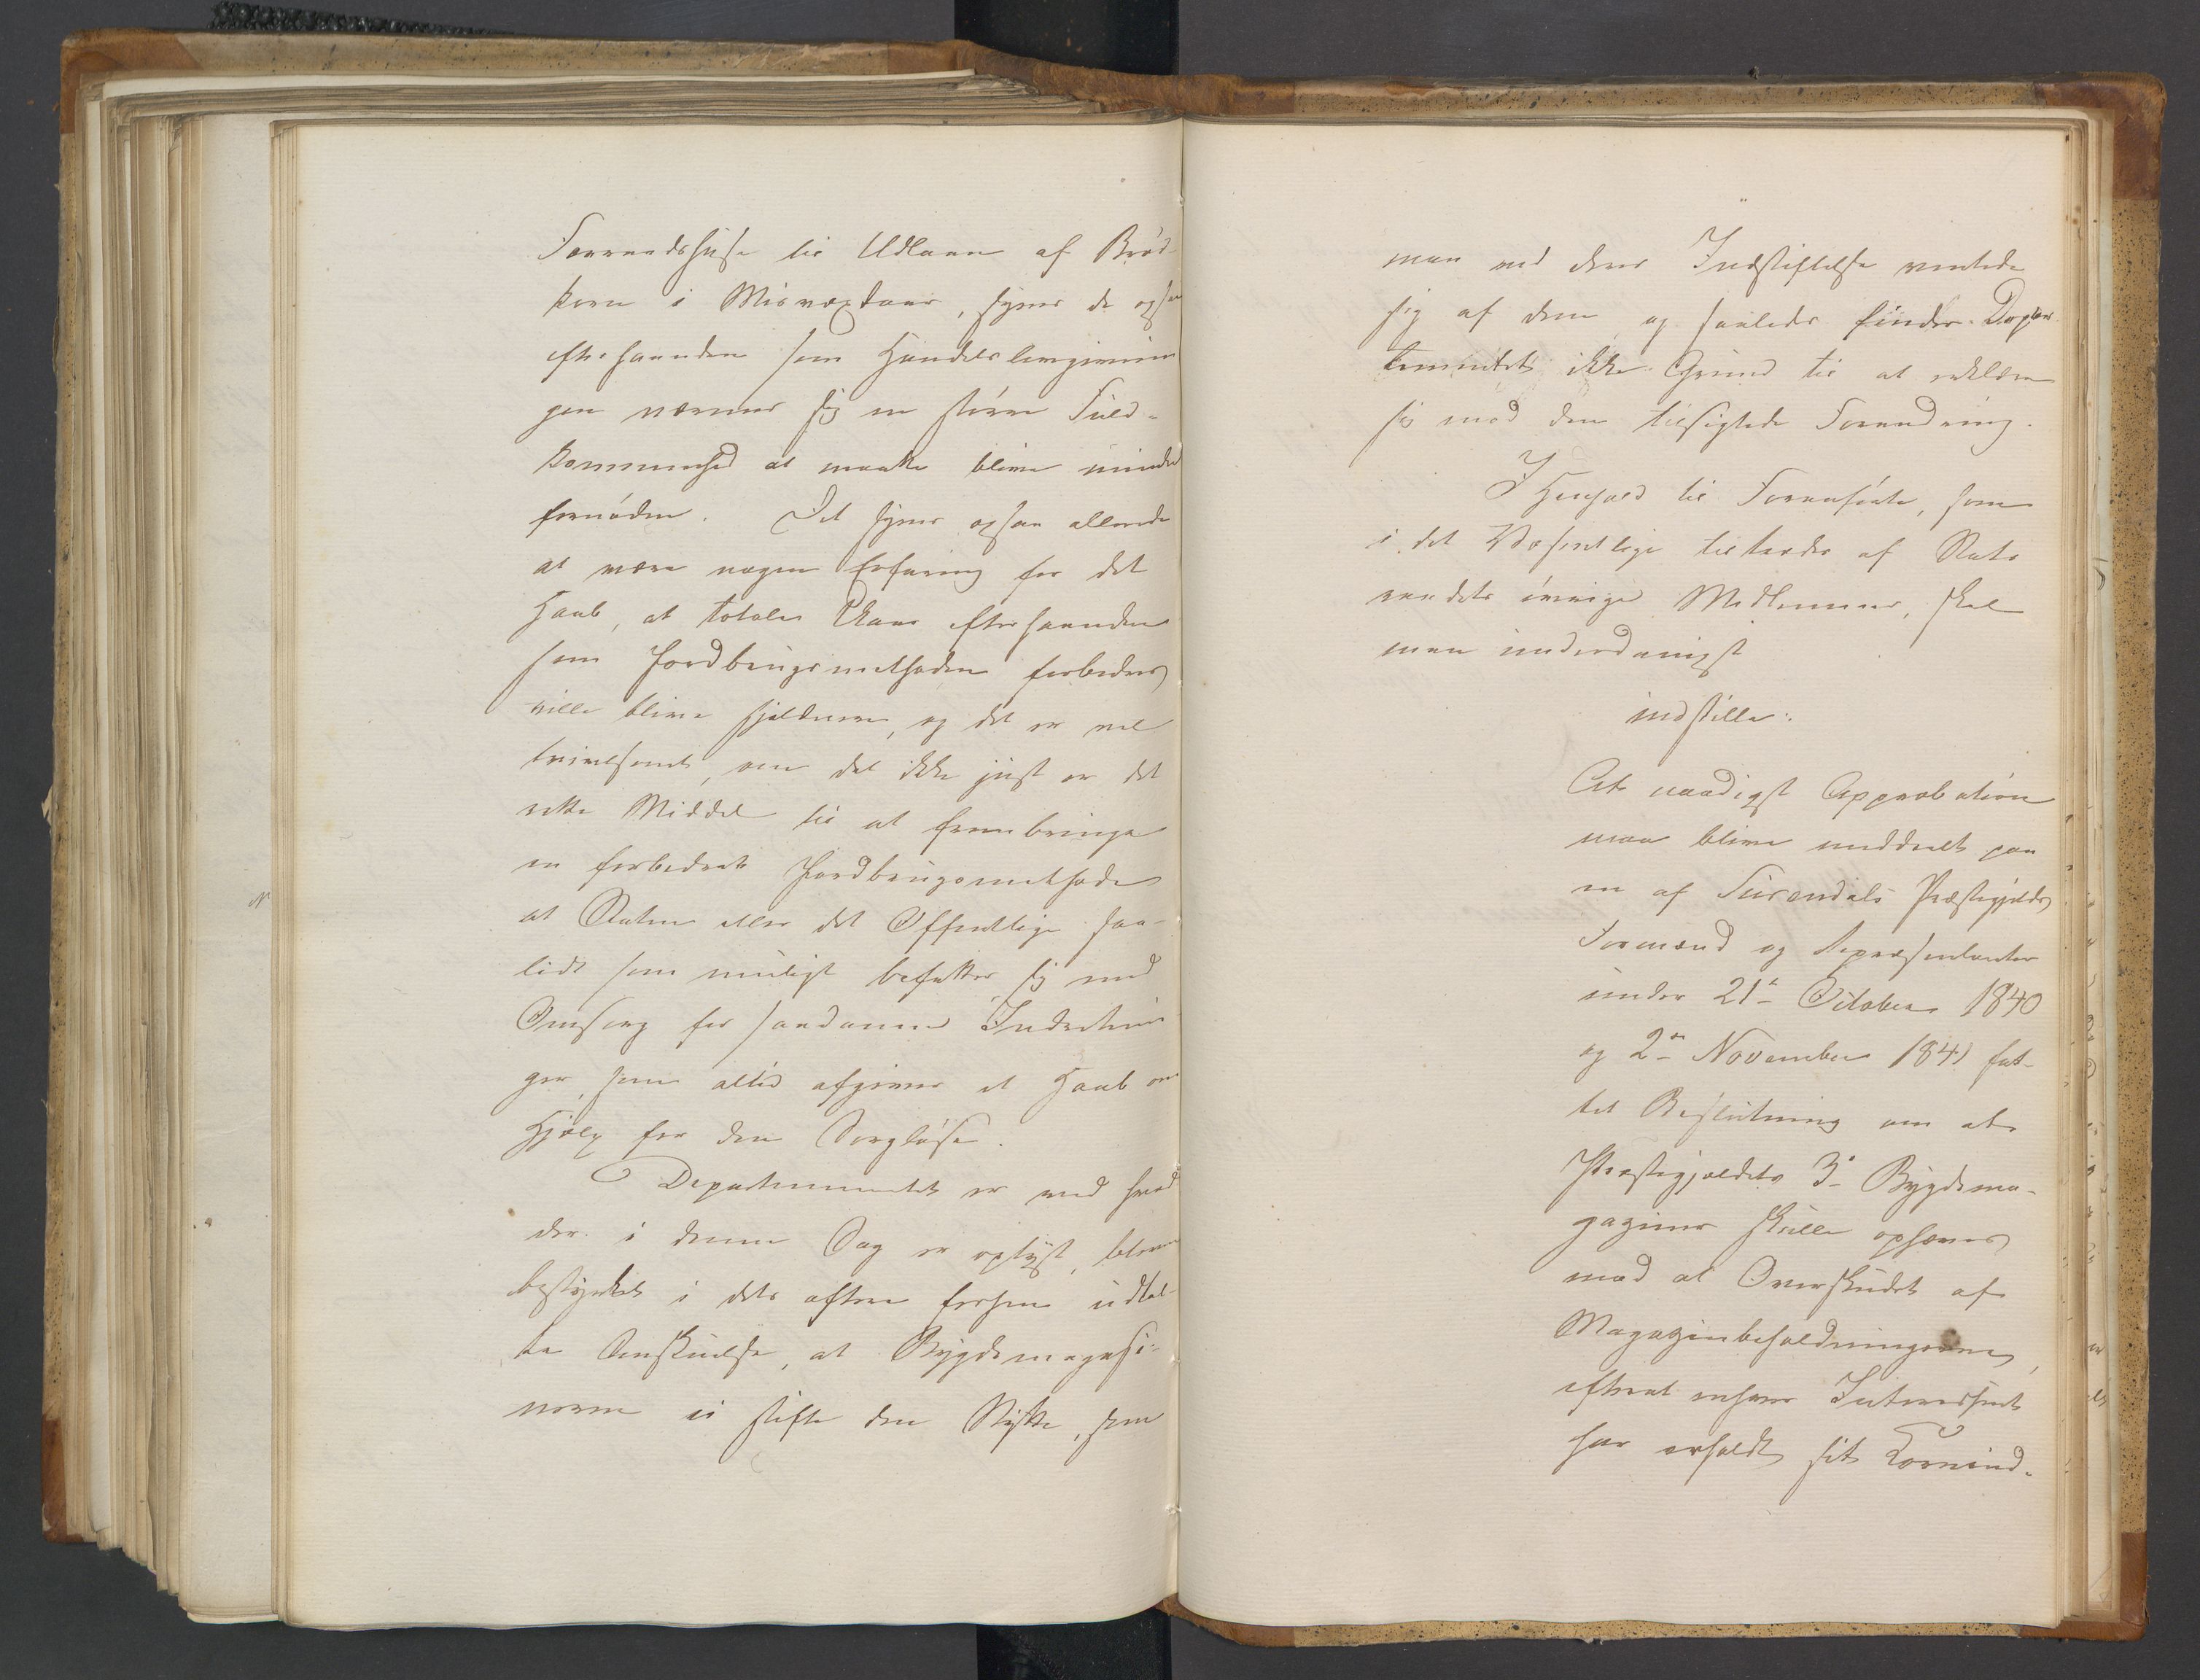 Forraadshuse til Udlaan af Brød-
korn i Misvæxtaar, synes de ogsaa
efterhaanden som Handelslovgivnin
gen nærmer sig en større Fuld-
kommenhed at maatte blive mindre
fornødne. Det synes ogsaa allerede
at være nogen Erfaring for det
Haab, at totale Uaar efterhaanden
som Jordbrugsmethoden forbedres
ville blive sjeldnere, og det er vel
tvivlsomt, om det ikke just er det
rette Middel til at frembringe
en forbedret Jordbrugsmethode
at Staten eller det Offentlige saa-
lidt som muligt befatter sig med
Omsorg for saadanne Indretnin
ger, som altid afgiver et Haab om
Hjelp for den Sorgløse.
Departementet er ved hvad
der i denne Sag er oplyst, bleven
bestyrket i dets oftere forhen udtal-
te Anskuelse, at Bygdemagasi-
nerne ei stifte den Nytte, som
man ved deres Indstiftelse ventede
sig af dem og saaledes finder Depar
tementet ikke Grund til at erklære
sig mod den tilsigtede Forandring.
I Henhold til Foranførte, som
i det Væsentlige tiltrædes af Stats
raadets øvrige Medlemmer, skal
man underdanigst
indstille:
At naadigst Approbation
maa blive meddeelt paa
en af Surendals Præstegjelds
Formænd og Repræsentanter
under 21de October 1840
og 2den November 1841 fat-
tet Beslutning om at
Præstegjeldets 3de Bygdema-
gaziner skulle ophæves
mod at Overskudet af
Magazinbeholdningerne,
efterat enhver Interessent
har erholdt sit Kornind-